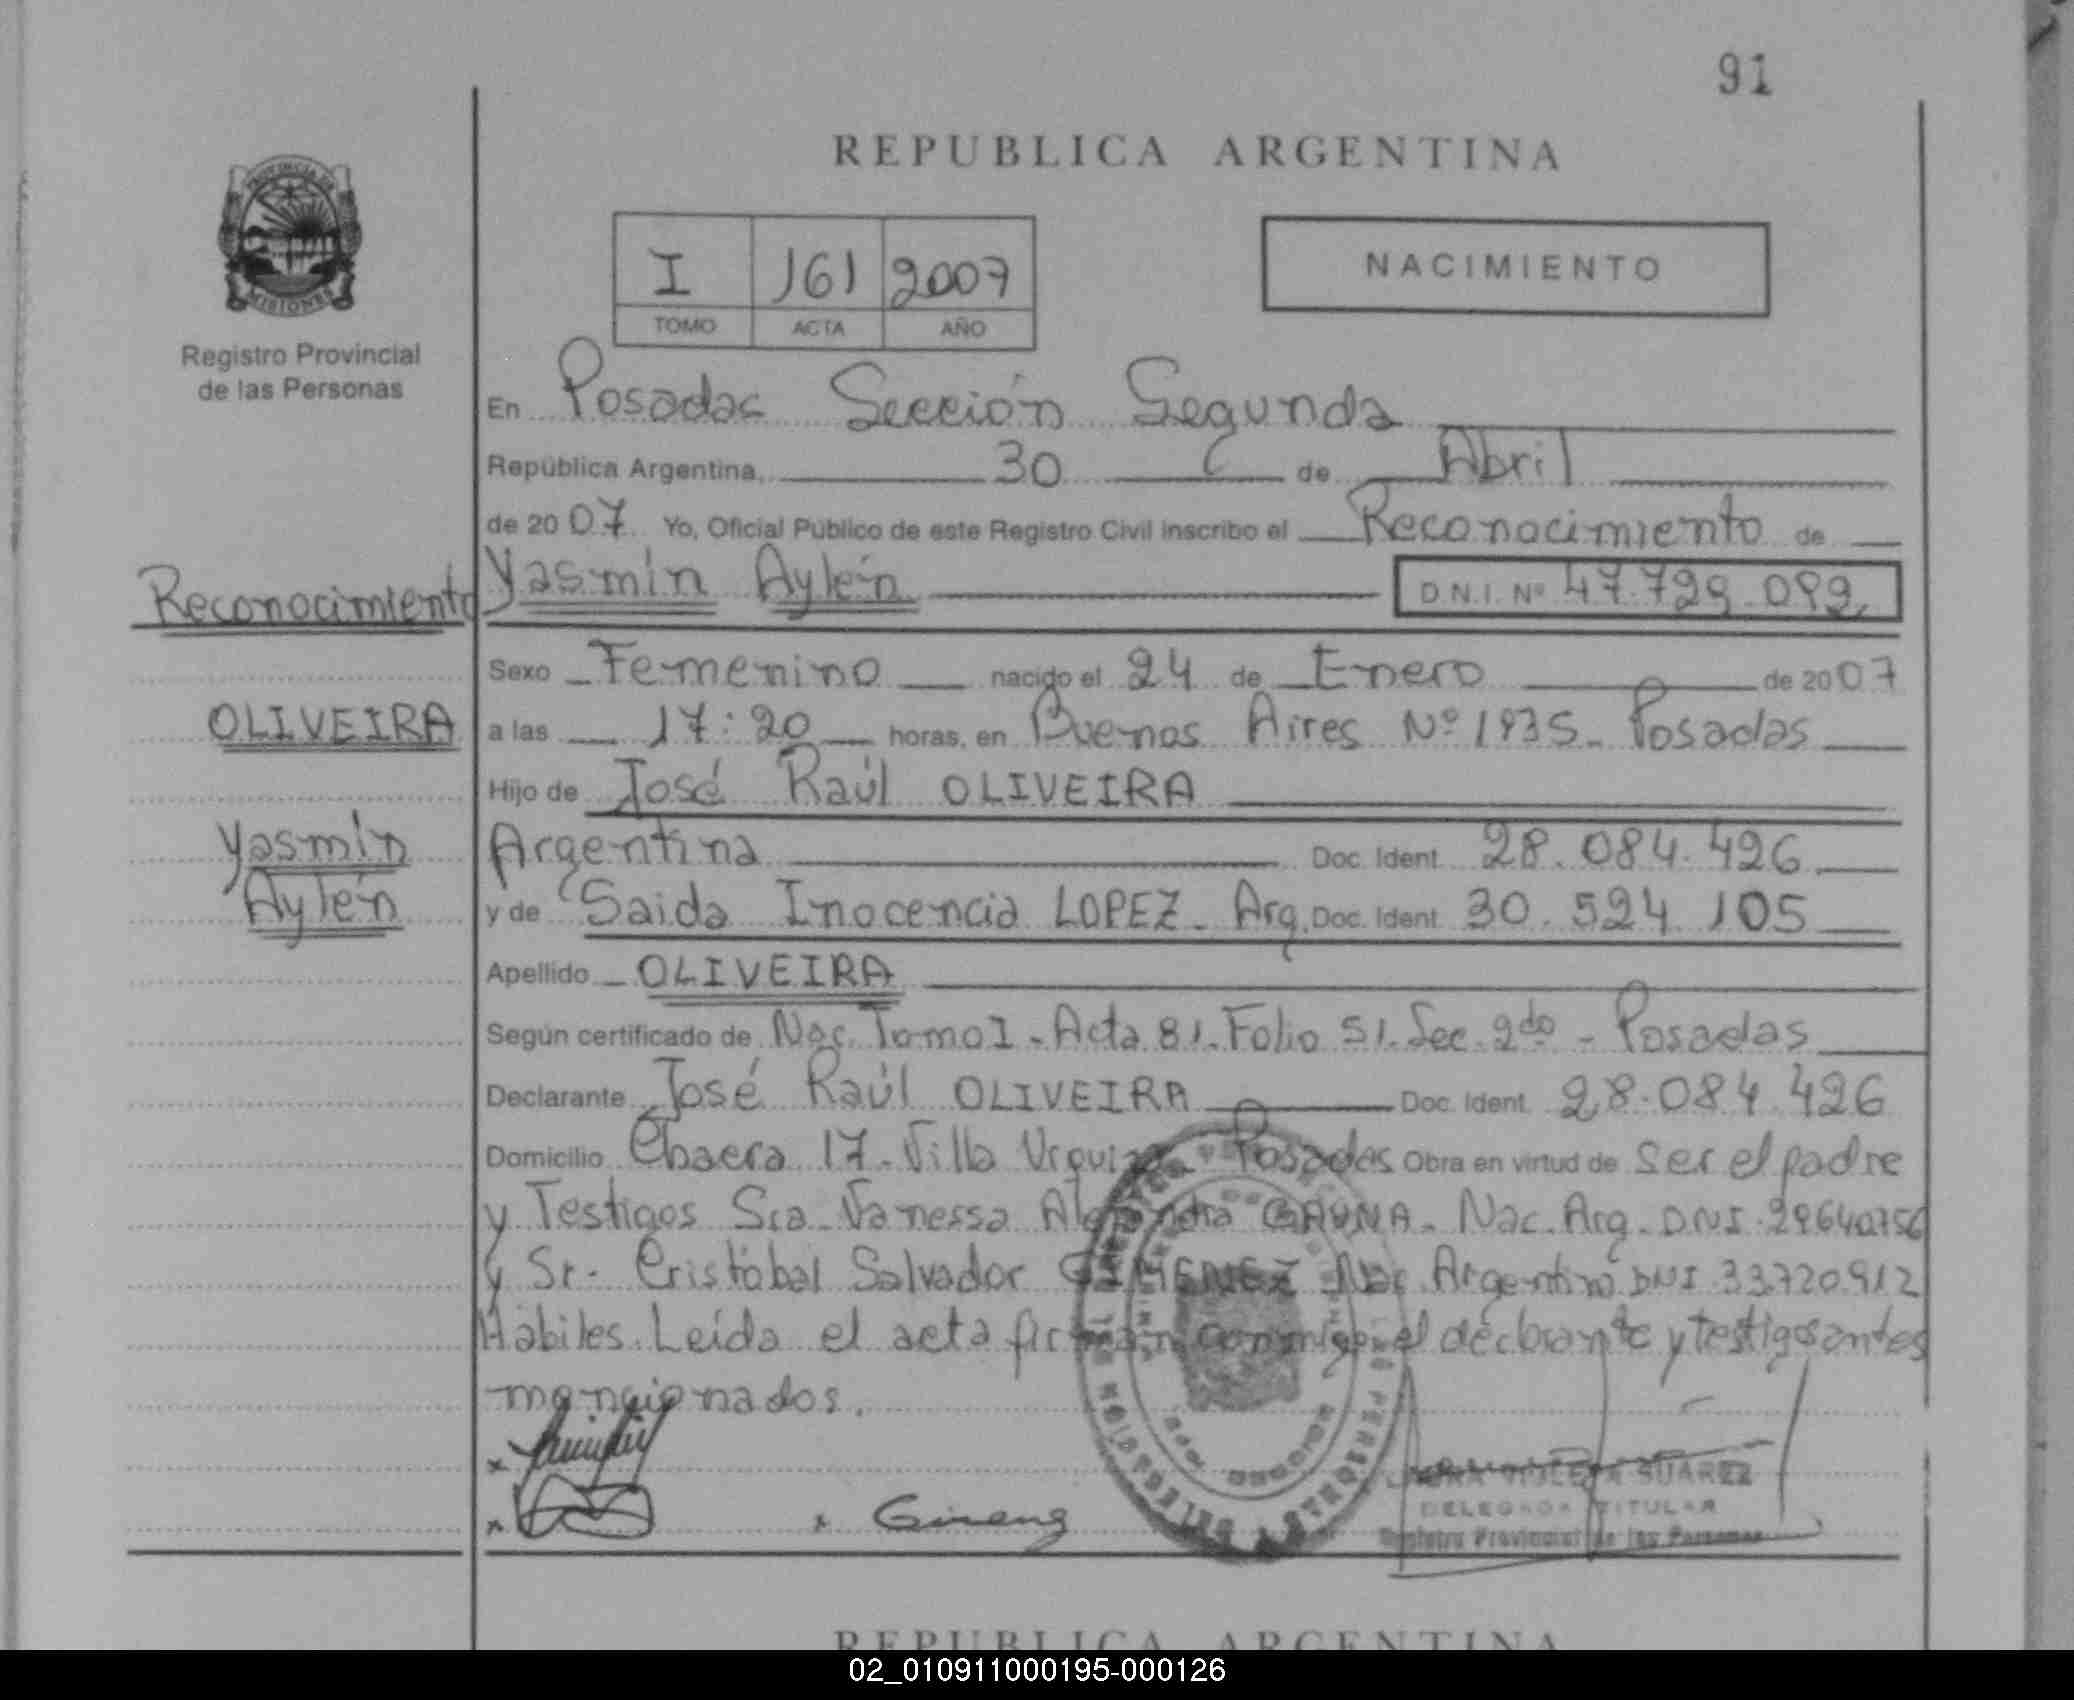 91
REPUBLICA ARGENTINA
PROVINCIA DE
MISIONES
Registro Provincial
de las Personas
I 161 2007
TOMO ACTA AÑO
NACIMIENTO
En Posadas Sección Segunda
República Argentina, 30 de Abril
de 2007 Yo, Oficial Público de este Registro Civil inscribo el Reconocimiento de
Reconocimiento
Yasmín Aylén D.N.I. Nº 47.729.092
Sexo Femenino nacido el 24 de Enero de 2007
OLIVEIRA
a las 17:20 horas, en Buenos Aires Nº 1935 - Posadas
Hijo de José Raúl OLIVEIRA
Yasmín
Argentina Doc. Ident. 28.084.426
Aylén
y de Saida Inocencia LOPEZ - Arg. Doc. Ident. 30.524.105
Apellido OLIVEIRA
Según certificado de Nac. Tomo I - Acta 81 - Folio 51 - Sec. 2da - Posadas
Declarante José Raúl OLIVEIRA Doc. Ident. 28.084.426
Domicilio Chacra 17 - Villa Urquiza - Posadas Obra en virtud de ser el padre
y Testigos Sra. Vanessa Alejandra GAUNA - Nac. Arg - DNI 29640756
y Sr. Cristóbal Salvador GIMENEZ Nac. Argentina DNI 33.720.912
Hábiles. Leída el acta firman conmigo el declarante y testigos antes
mencionados.
LAURA VIOLETA SUAREZ
DELEGADA TITULAR
Registro Provincial de las Personas
REPUBLICA ARGENTINA
02_010911000195-000126